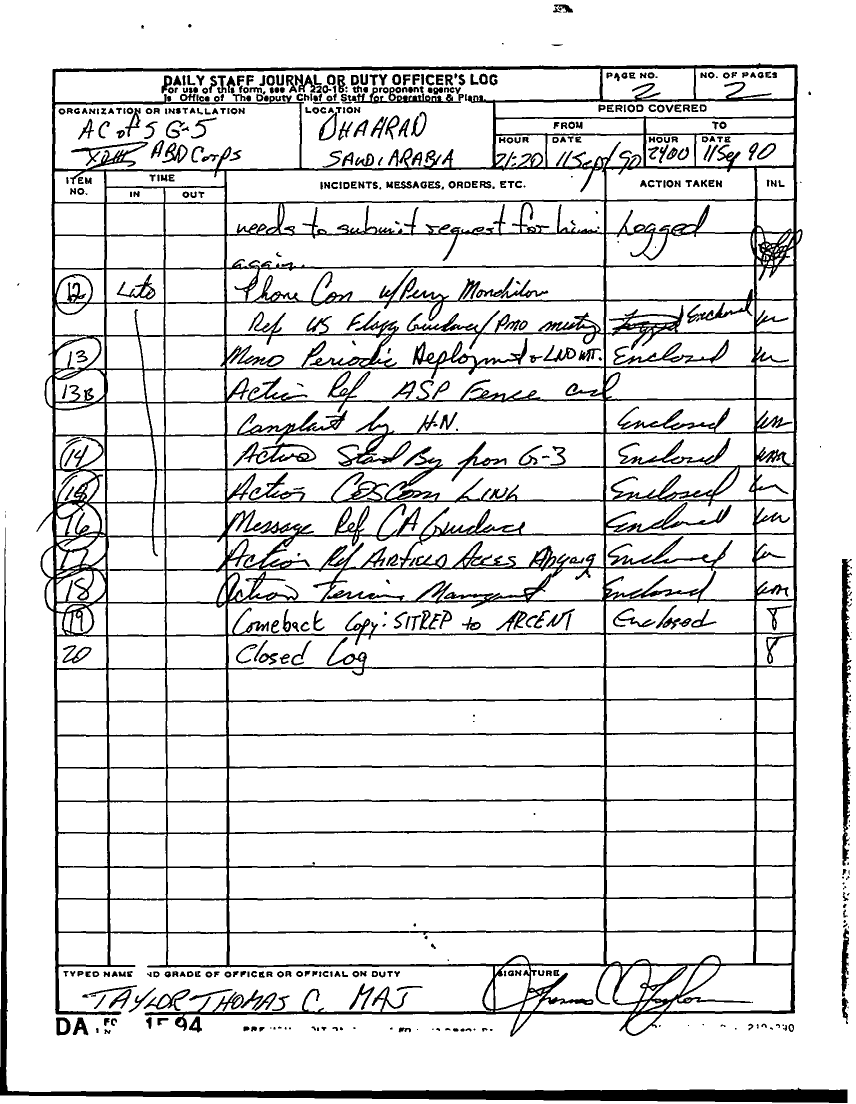 DAILY STAFF JOURNAL OR DUTY OFFICER'S LOG
For use of this form, see AR 220-15; the proponent agency
is Office of The Deputy Chief of Staff for Operations & Plans.
PAGE NO.
2
NO. OF PAGES
2
ORGANIZATION OR INSTALLATION
AC of S G-5
XVIII ABD Corps
LOCATION
DHAHRAD
SAUDI ARABIA
PERIOD COVERED
FROM
TO
HOUR
21:20
DATE
11 Sept/90
HOUR
2400
DATE
11 Sep 90
ITEM NO.
TIME
IN
OUT
INCIDENTS, MESSAGES, ORDERS, ETC.
ACTION TAKEN
INL
needs to submit request for him Logged
again.
12 Late Phone Con w/Perry
Ref US Flag Guidance/PMO meeting Logged Enclosed
13 Memo Periodic Deployment & LNO Enclosed
13B Action Ref ASP Fence and
Complaint by H.N. Enclosed
14 Action Stand By from G-3 Enclosed
15 Action COSCOM LINK Enclosed
16 Message Ref CA Guidance Enclosed
17 Action Ref AIRFIELD ACCES Enclosed
18 Action Terrain Management Enclosed
19 Comeback Copy: SITREP to ARCENT Enclosed
20 Closed Log
TYPED NAME ND GRADE OF OFFICER OR OFFICIAL ON DUTY
TAYLOR THOMAS C. MAJ
SIGNATURE
Thomas C Taylor
DA 1594